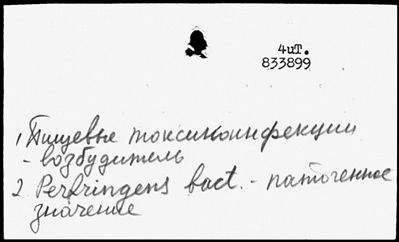 4иТ.
833899
1, Пищевые токсикоинфекции
- возбудитель
2. Perfringens bact. - патогенное
значение